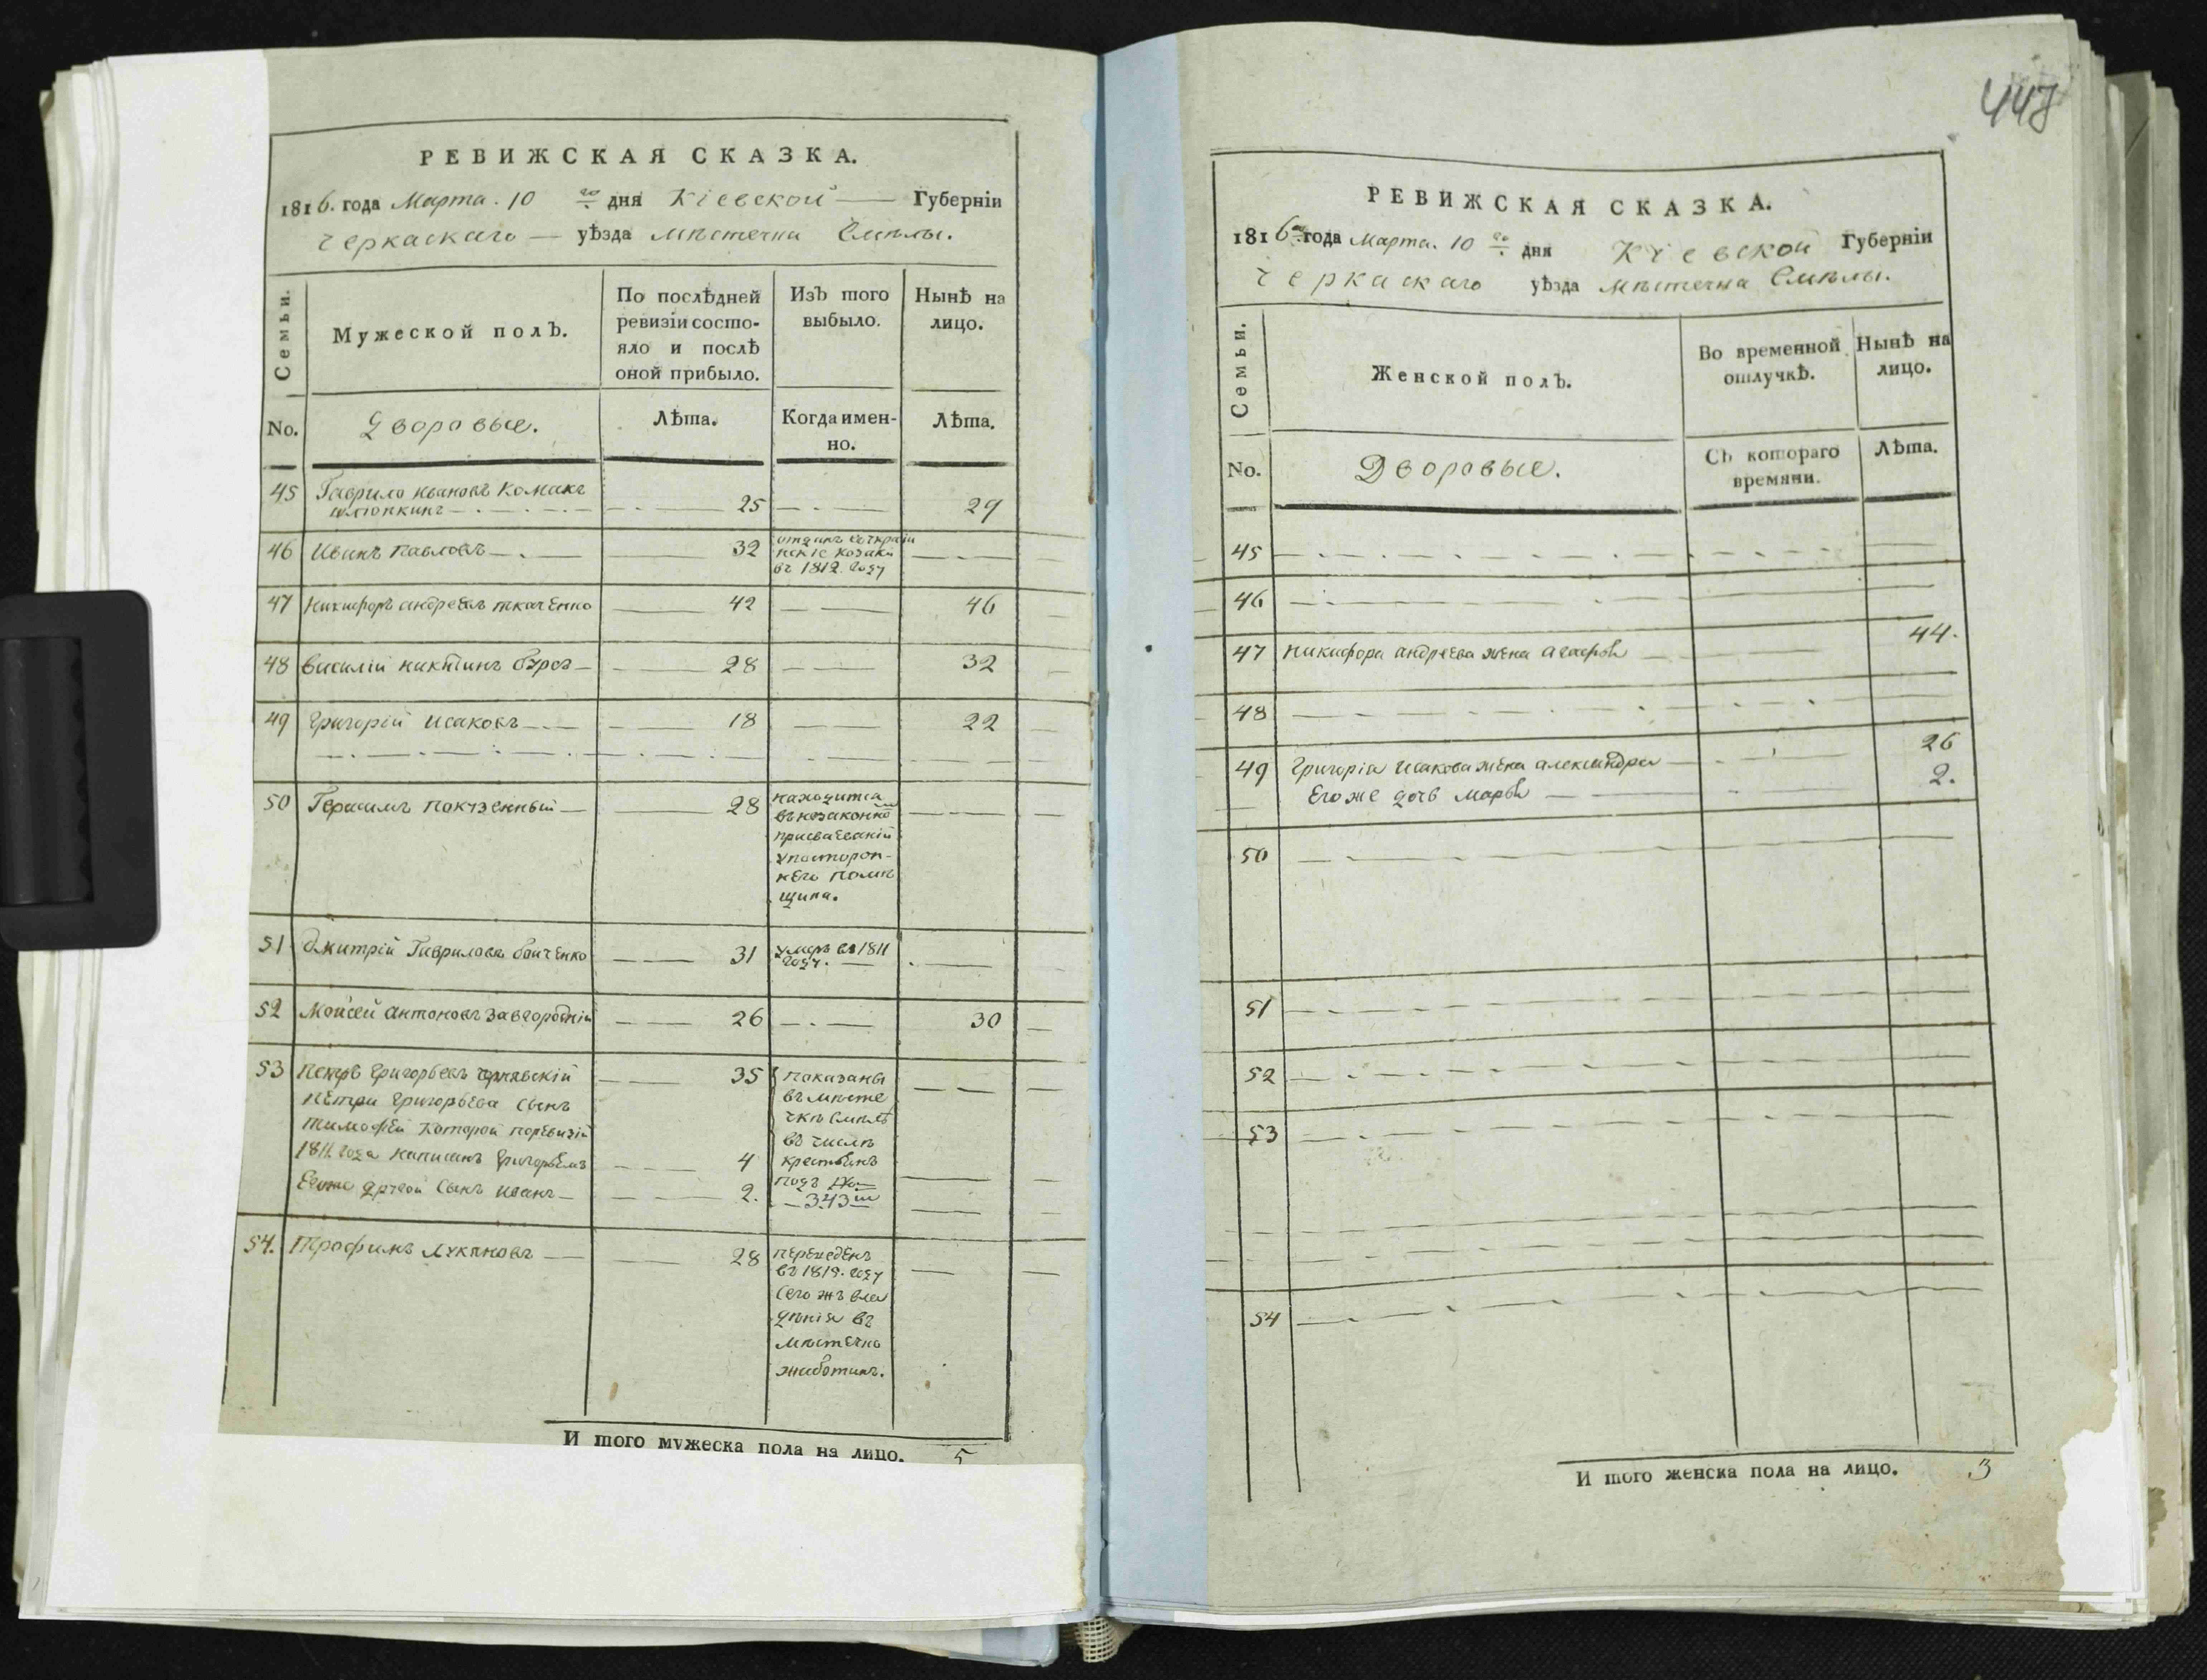 447
РЕВИЖСКАЯ СКАЗКА.
1816. года Марта. 10 го дня Кіевской Губерніи
Черкаскаго уѣзда мѣстечка Смѣлы.
Семьи.
Мужеской полЪ.
По послѣдней
ревизіи состо-
яло и послѣ
оной прибыло.
ИзЪ того
выбыло.
НынѢ на
лицо.
No.
Дворовые.
Лѣта.
Когда имен-
но.
Лѣта.
45 Гаврило Ивановъ
25 29
46 Иванъ Павловъ 32
отданъ
козаки
въ 1812. году
47 Никифоръ андреевъ ткаченко 42 46
48 Василій никитинъ 28 32
49 Григорій Исаковъ 18 22
50 Герасимъ 28
находится
въ незаконно
присваеваніи
у посторон-
него помѣ
щика.
51 Дмитрій Гавриловъ бойченко 31
умеръ въ 1811
году.
52 Моисей антоновъ Завгородній 26 30
53 Петръ Григорьевъ чернявскій 35
Петра Григорьева сынъ
тимофей которой поревизіи
1811. года написанъ Григорьемъ 4
Егоже другой сынъ иванъ 2.
показаны
въ мѣсте
чкѣ Смѣлѣ
въ числѣ
крестьянъ
подъ №
343 м
54. Трофимъ Лукяновъ 28
переведенъ
въ 181 . году
сего жъ вла
дѣнія въ
мѣстечко
жаботинъ.
И того мужеска пола на лицо. 5
РЕВИЖСКАЯ СКАЗКА.
1816 года Марта. 10 го дня Кіевской Губерніи
Черкаскаго уѣзда мѣстечка Смѣлы.
Семьи.
Женской полЪ.
Во временной
отлучкѣ.
НынѢ на
лицо.
No.
Дворовые.
СЪ котораго
времяни.
Лѣта.
45
46
47 Никифора андреева жена агафья 44.
48
49 Григорія исакова жена александра 26
Его же дочь марья 2.
50
51
52
53
54
И того женска пола на лицо. 3